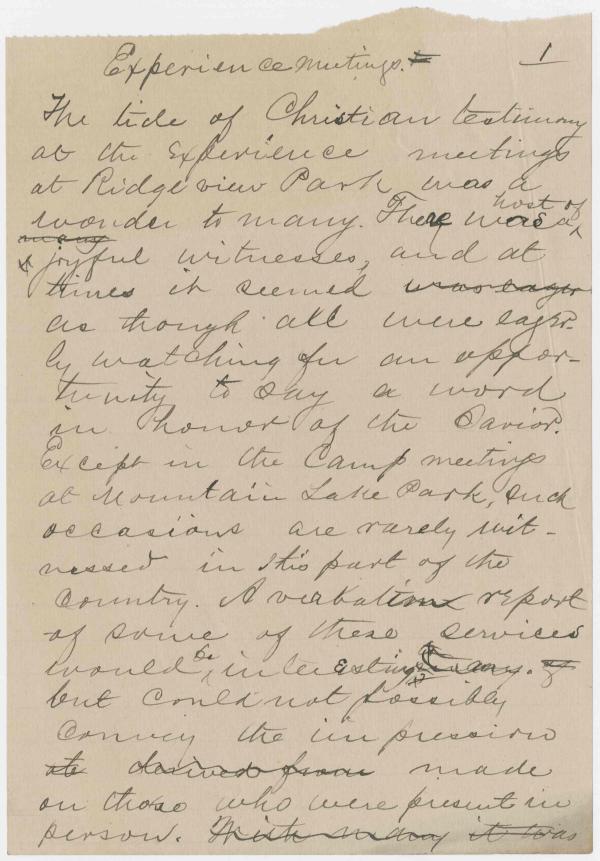 Experience meetings.
1
The tide of Christian testimony
at the Experience meetings
at Ridgeview Park was a
wonder to many. There was a host of
many
joyful witnesses, and at
times it seemed was eager
as though all were eager-
ly watching for an oppor-
tunity to say a word
in honor of the Savior.
Except in the Camp meetings
at Mountain Lake Park, such
occasions are rarely wit-
nessed in this part of the
Country. A verbatim report
of some of these services
would be interesting
but could not possibly
Convey the impression
desired from made
on those who were present in
person. many it was